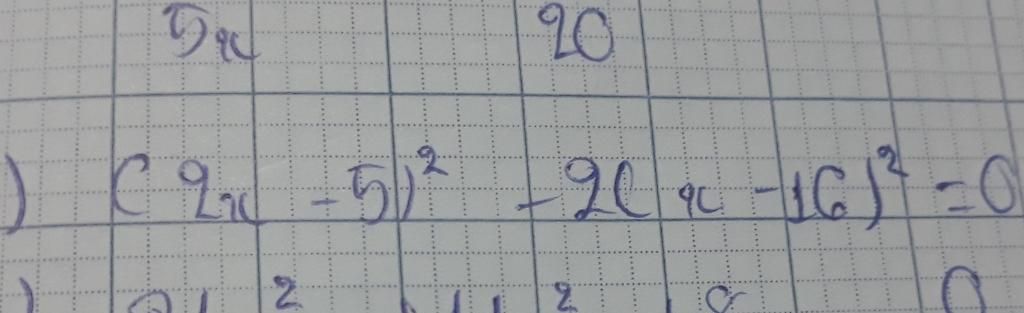 5x 20
) (2x - 5)² - 2(x - 16)² = 0